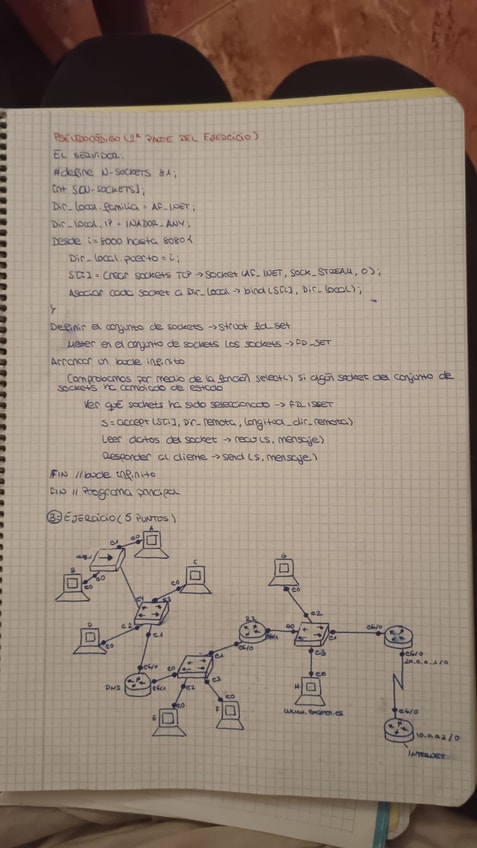 PSEUDOCÓDIGO (2ª PARTE DEL EJERCICIO)
EL SERVIDOR:
#define N-SOCKETS 81;
Int S[N-SOCKETS];
Dir_local.familia = AF_INET;
Dir_local.IP = INADOR_ANY;
Desde i = 8000 hasta 8080 {
Dir_local.puerto = i;
S[i] = Crear sockets TCP → socket (AF_INET, SOCK_STREAM, 0);
Asociar cada socket a Dir_local → bind (S[i], Dir_local);
}
Definir el conjunto de sockets → struct fd_set
Meter en el conjunto de sockets los sockets → FD_SET
Arrancar un bucle infinito
Comprobamos por medio de la función select() si algún socket del conjunto de
sockets ha cambiado de estado
Ver qué sockets ha sido seleccionado → FD_ISSET
s = accept (S[i], Dir_remota, longitud_dir_remota)
Leer datos del socket → recv (s, mensaje)
Responder al cliente → send (s, mensaje)
FIN // bucle infinito
FIN // Programa principal
3- EJERCICIO (5 PUNTOS)
A
e1
e0
B
e0
e0
C
e0
e4
e3
D
e0
e2
e1
G
e0
e2
R2
e0
e1
e0/0
e3
e0/0
20.0.0.1/0
e0/0
DNS
e0/1
e0
e1
e2
e3
e0
H
e0
E
e0
F
e0/0
10.0.0.2/0
INTERNET